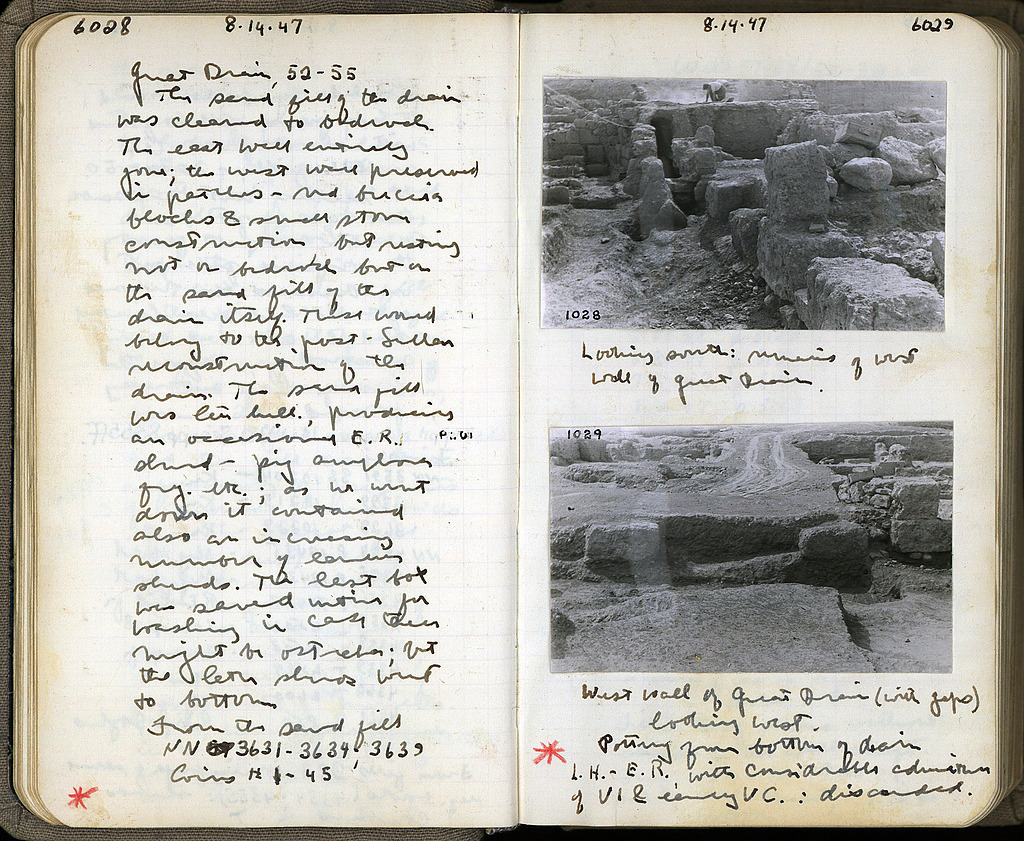 6028 8·14·47
Great Drain, 52-55
The sand fill of the drain
was cleared to bedrock.
The east wall entirely
gone; the west wall preserved
in patches - red breccia
blocks & small stone
construction but resting
not on bedrock but on
the sand fill of the
drain itself. These would
belong to the post-Sullan
reconstruction of the
drain. The sand fill
was, producing
an occasional E.R.
sherd - pig amphora
frg. etc.; as we went
down it contained
also an increasing
number of earlier
sherds. The last box
was saved for
washing in case there
might be ostraka; but
the later sherds went
to bottom.
From the sand fill
NN 3631-3634, 3639
Coins # 1-45
8·14·47 6029
1028
Looking south: remains of west
wall of Great Drain.
1029
West wall of Great Drain (with gaps)
looking west.
Pottery from bottom of drain
L.H.-E.R. with considerable admixture
of VI & early V C.: discarded.